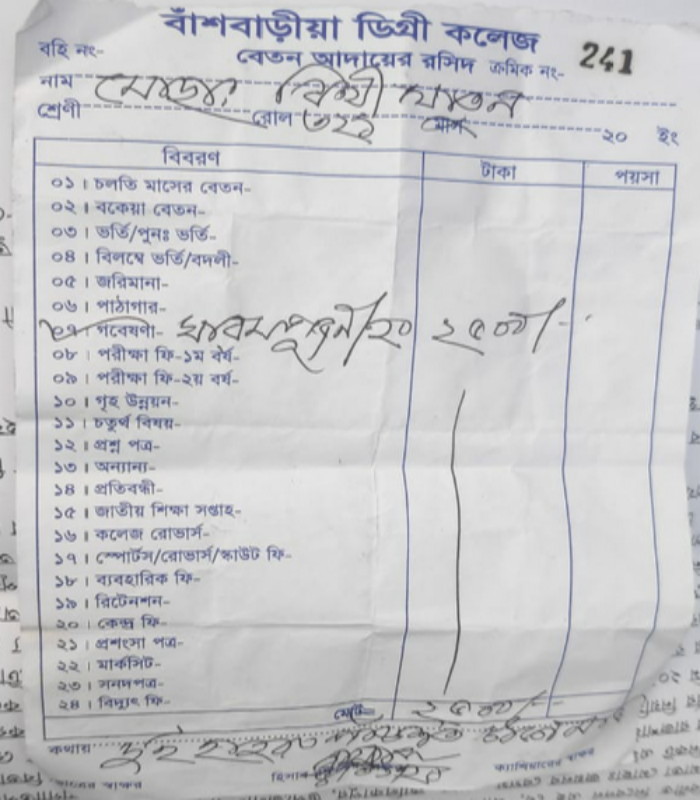 বাঁশবাড়ীয়া ডিগ্রী কলেজ
বেতন আদায়ের রসিদ
বহি নং- ক্রমিক নং- 241
নাম
শ্রেণী রোল মাস ২০ ইং
বিবরণ টাকা পয়সা
০১। চলতি মাসের বেতন-
০২। বকেয়া বেতন-
০৩। ভর্তি/পুনঃ ভর্তি-
০৪। বিলম্বে ভর্তি/বদলী-
০৫। জরিমানা-
০৬। পাঠাগার-
০৭। গবেষণা- ২৫০০/-
০৮। পরীক্ষা ফি-১ম বর্ষ-
০৯। পরীক্ষা ফি-২য় বর্ষ-
১০। গৃহ উন্নয়ন-
১১। চতুর্থ বিষয়-
১২। প্রশ্ন পত্র-
১৩। অন্যান্য-
১৪। প্রতিবন্ধী-
১৫। জাতীয় শিক্ষা সপ্তাহ-
১৬। কলেজ রোভার্স-
১৭। স্পোর্টস/রোভার্স/স্কাউট ফি-
১৮। ব্যবহারিক ফি-
১৯। রিটেনশন-
২০। কেন্দ্র ফি-
২১। প্রশংসা পত্র-
২২। মার্কসিট-
২৩। সনদপত্র-
২৪। বিদ্যুৎ ফি-
মোট= ২৫০০/-
কথায় দুই হাজার পাঁচশত
ক্যাশিয়ারের স্বাক্ষর